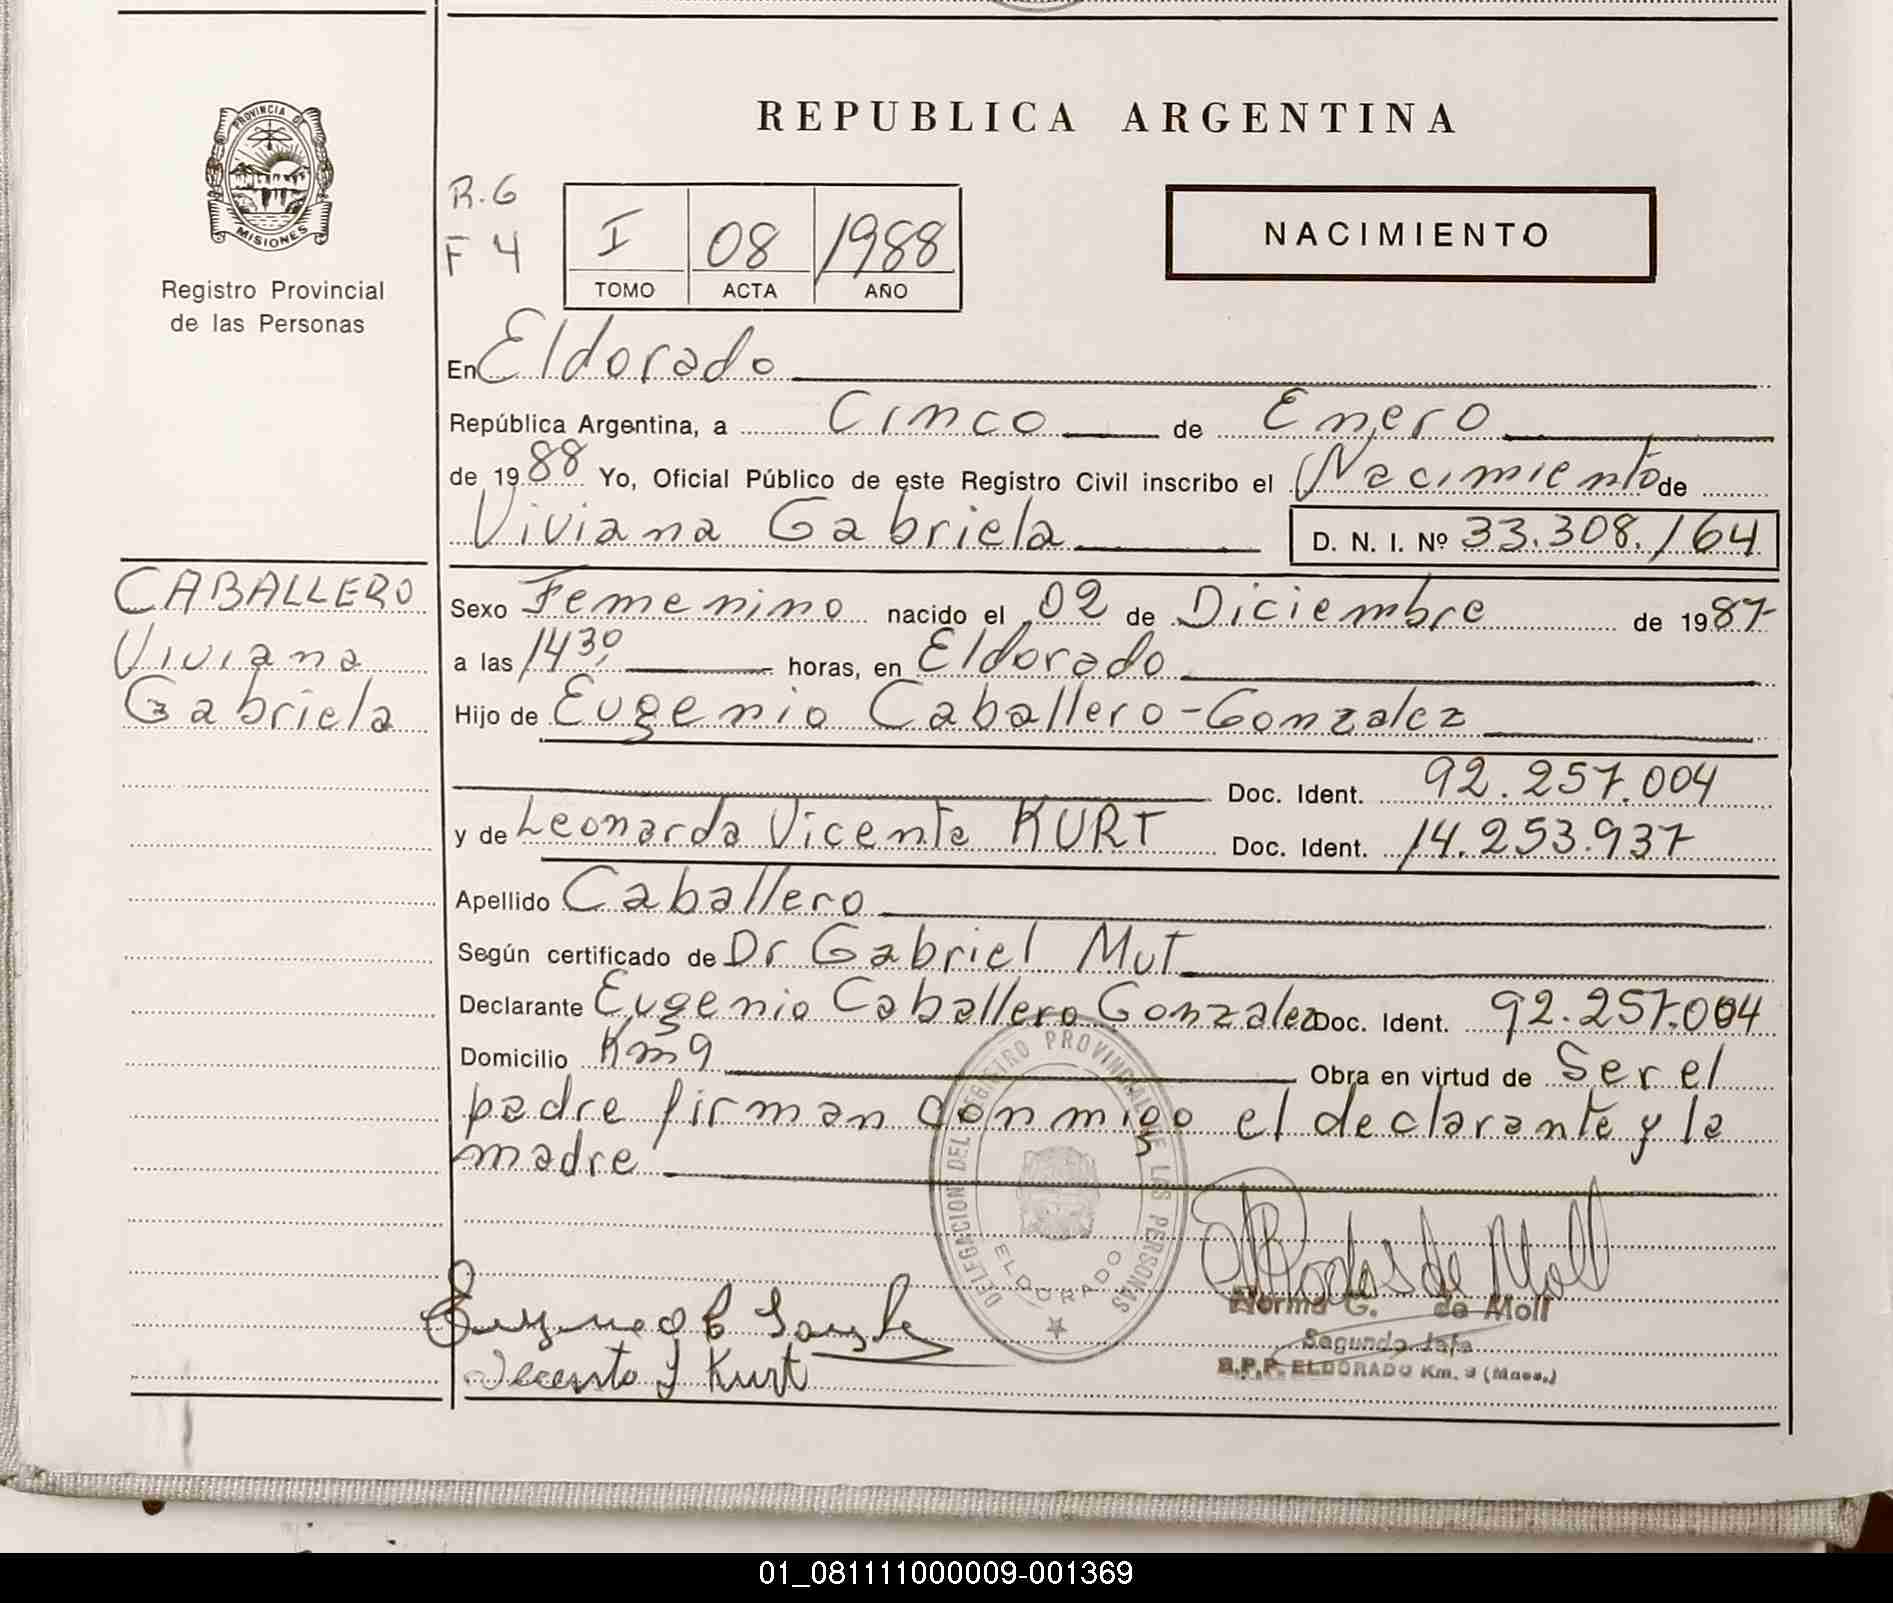 PROVINCIA DE
MISIONES
Registro Provincial
de las Personas
REPUBLICA ARGENTINA
R.G
F 4
I 08 1988
TOMO ACTA AÑO
NACIMIENTO
En Eldorado
República Argentina, a Cinco de Enero
de 1988 Yo, Oficial Público de este Registro Civil inscribo el Nacimiento de
Viviana Gabriela D. N. I. Nº 33.308.164
CABALLERO
Viviana
Gabriela
Sexo Femenino nacido el 02 de Diciembre de 1987
a las 14 30 horas, en Eldorado
Hijo de Eugenio Caballero-Gonzalez
Doc. Ident. 92.257.004
y de Leonarda Vicenta KURT Doc. Ident. 14.253.937
Apellido Caballero
Según certificado de Dr Gabriel Mut
Declarante Eugenio Caballero Gonzalez Doc. Ident. 92.257.004
Domicilio Km 9 Obra en virtud de Ser el
padre firman conmigo el declarante y la
madre
DELEGACION DEL REGISTRO PROVINCIAL DE LAS PERSONAS
ELDORADO
Rodas de Moll
Norma G. de Moll
Segundo Jefe
R.P.P. ELDORADO Km. 9 (Mnes.)
Kurt
01_081111000009-001369